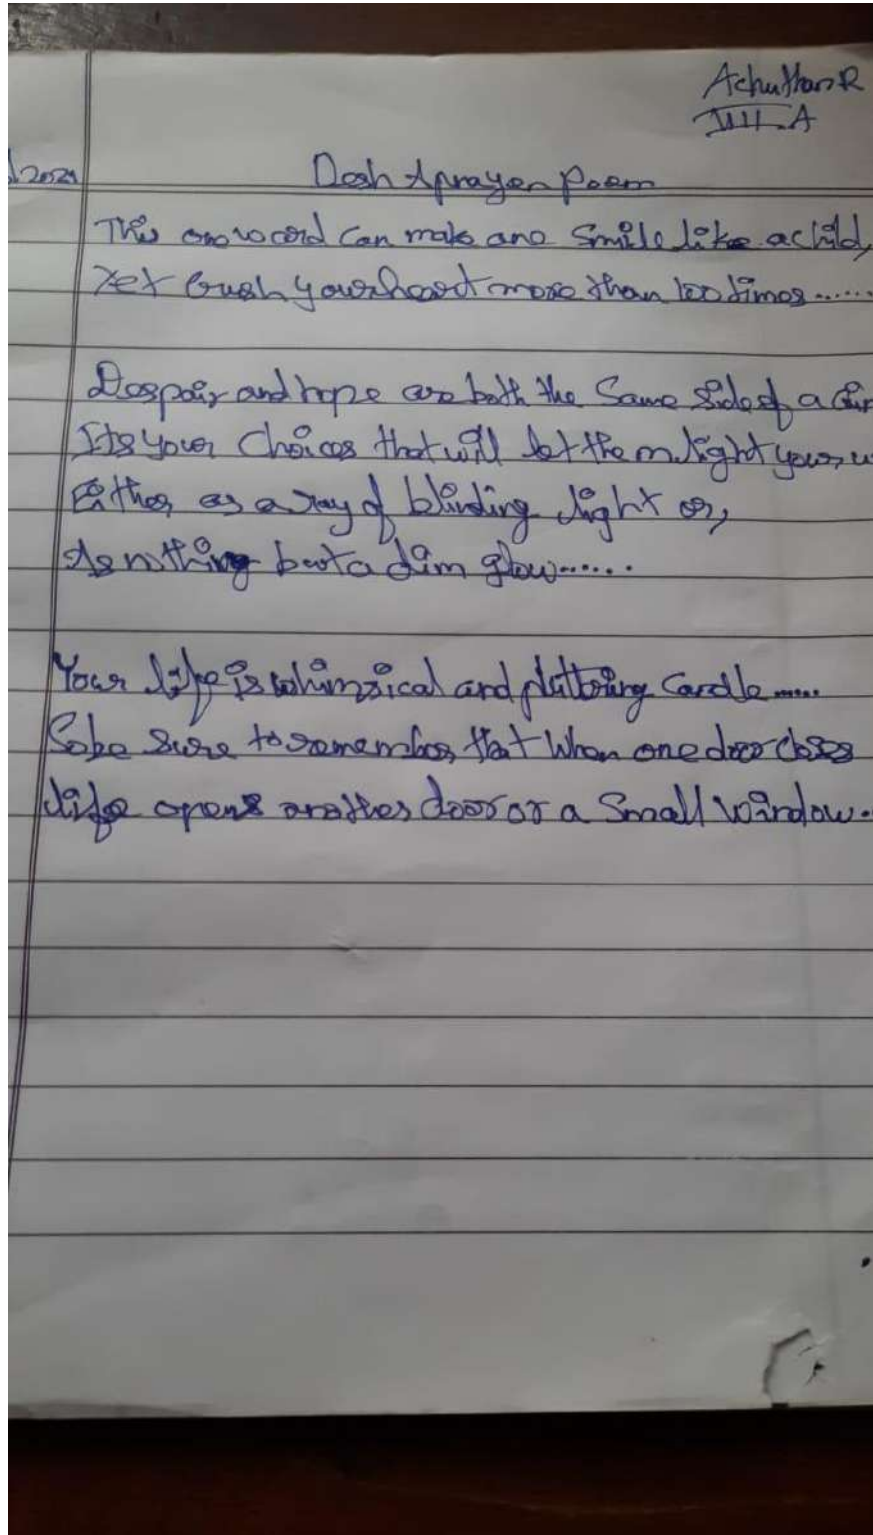 Achuthan R
VIII A
/2021
Desh Aprayer Poem
This one word can make one Smile like a child,
Yet Crush your heart more than 100 times......
Despair and hope are both the Same side of a
Its your Choices that will let them light your
Either as a ray of blinding light or,
As nthing but a dim glow......
Your life is whimsical and fluttering Candle.....
So be Sure to remember that When one door closes
life opens another door or a Small Window.